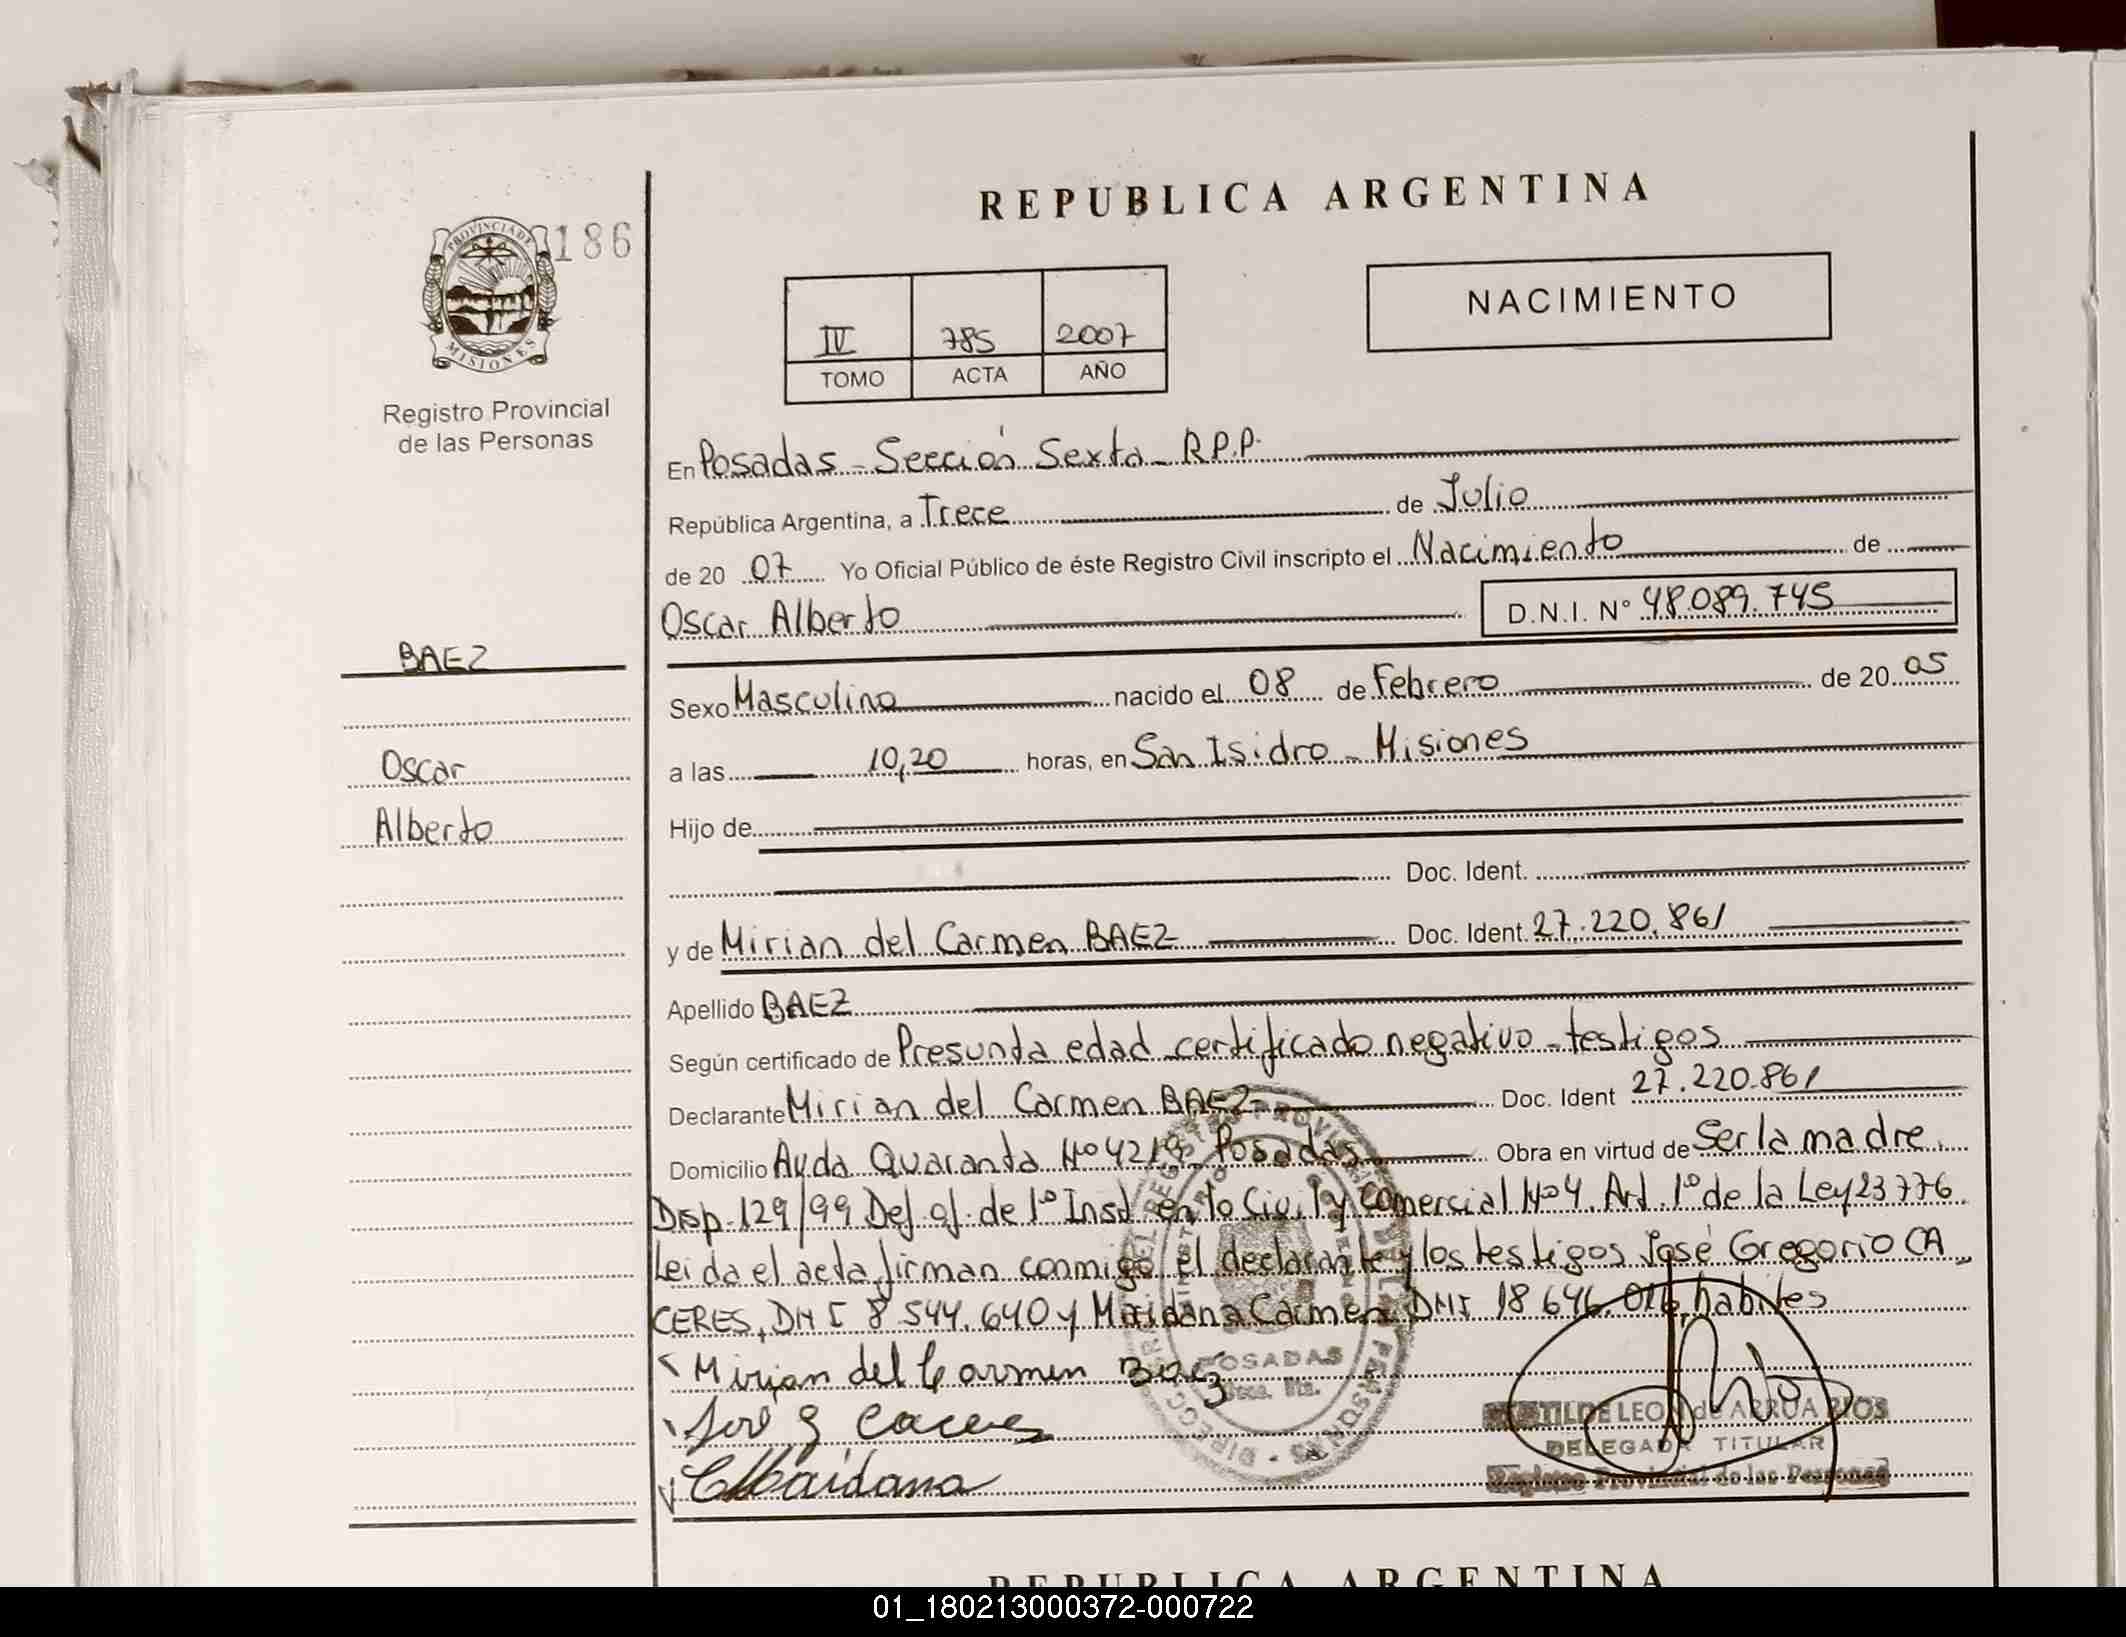 REPUBLICA ARGENTINA
PROVINCIA DE
MISIONES
186
Registro Provincial
de las Personas
IV 785 2007
TOMO ACTA AÑO
NACIMIENTO
En Posadas - Sección Sexta - R.P.P.
República Argentina, a Trece de Julio
de 20 07 Yo Oficial Público de éste Registro Civil inscripto el Nacimiento de
Oscar Alberto D.N.I. Nº 48.089.745
BAEZ
Oscar
Alberto
Sexo Masculino nacido el 08 de Febrero de 20 05
a las 10,20 horas, en San Isidro - Misiones
Hijo de
Doc. Ident.
y de Mirian del Carmen BAEZ Doc. Ident. 27.220.861
Apellido BAEZ
Según certificado de Presunta edad certificado negativo - testigos
Declarante Mirian del Carmen BAEZ Doc. Ident 27.220.861
Domicilio Avda Quaranta Nº 4218 Posadas Obra en virtud de Ser la madre.
Disp. 129/99 Def. of. de 1º Inst. en lo Civil y Comercial Nº 4. Art. 1º de la Ley 23.776
Leida el acta firman conmigo el declarante y los testigos José Gregorio CA
CERES, DNI 8.544.640 y Maidana Carmen DNI 18.646.016, habiles
Mirian del Carmen Baez
José G Caceres
CMaidana
POSADAS
Secc. 6ta.
MATILDE LEON de ARRUA RIOS
DELEGADA TITULAR
Registro Provincial de las Personas
REPUBLICA ARGENTINA
01_180213000372-000722